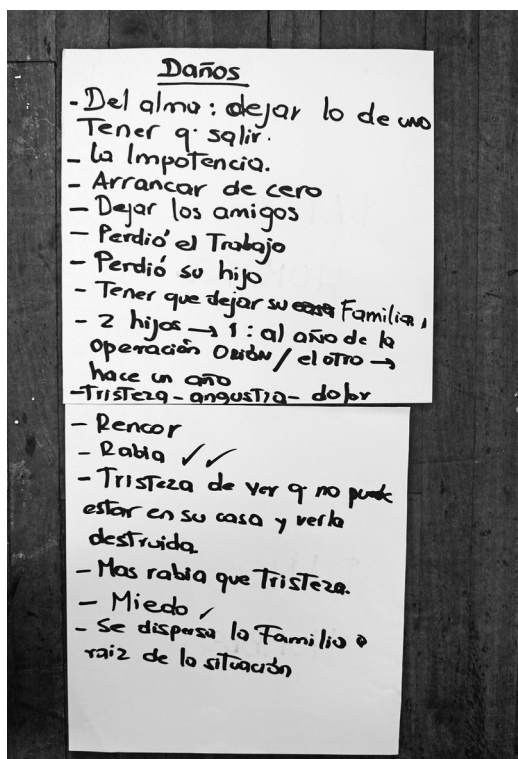 Daños
- Del alma: dejar lo de uno
Tener q. salir.
- La Impotencia.
- Arrancar de cero
- Dejar los amigos
- Perdió el Trabajo
- Perdió su hijo
- Tener que dejar su casa Familia,
- 2 hijos → 1: al año de la
operación Orión / el otro →
hace un año
- Tristeza - angustia - dolor
- Rencor
- Rabia ✓✓
- Tristeza de ver q no puede
estar en su casa y verla
destruida
- Mas rabia que Tristeza.
- Miedo ✓
- Se dispersa la Familia a
raiz de la situación